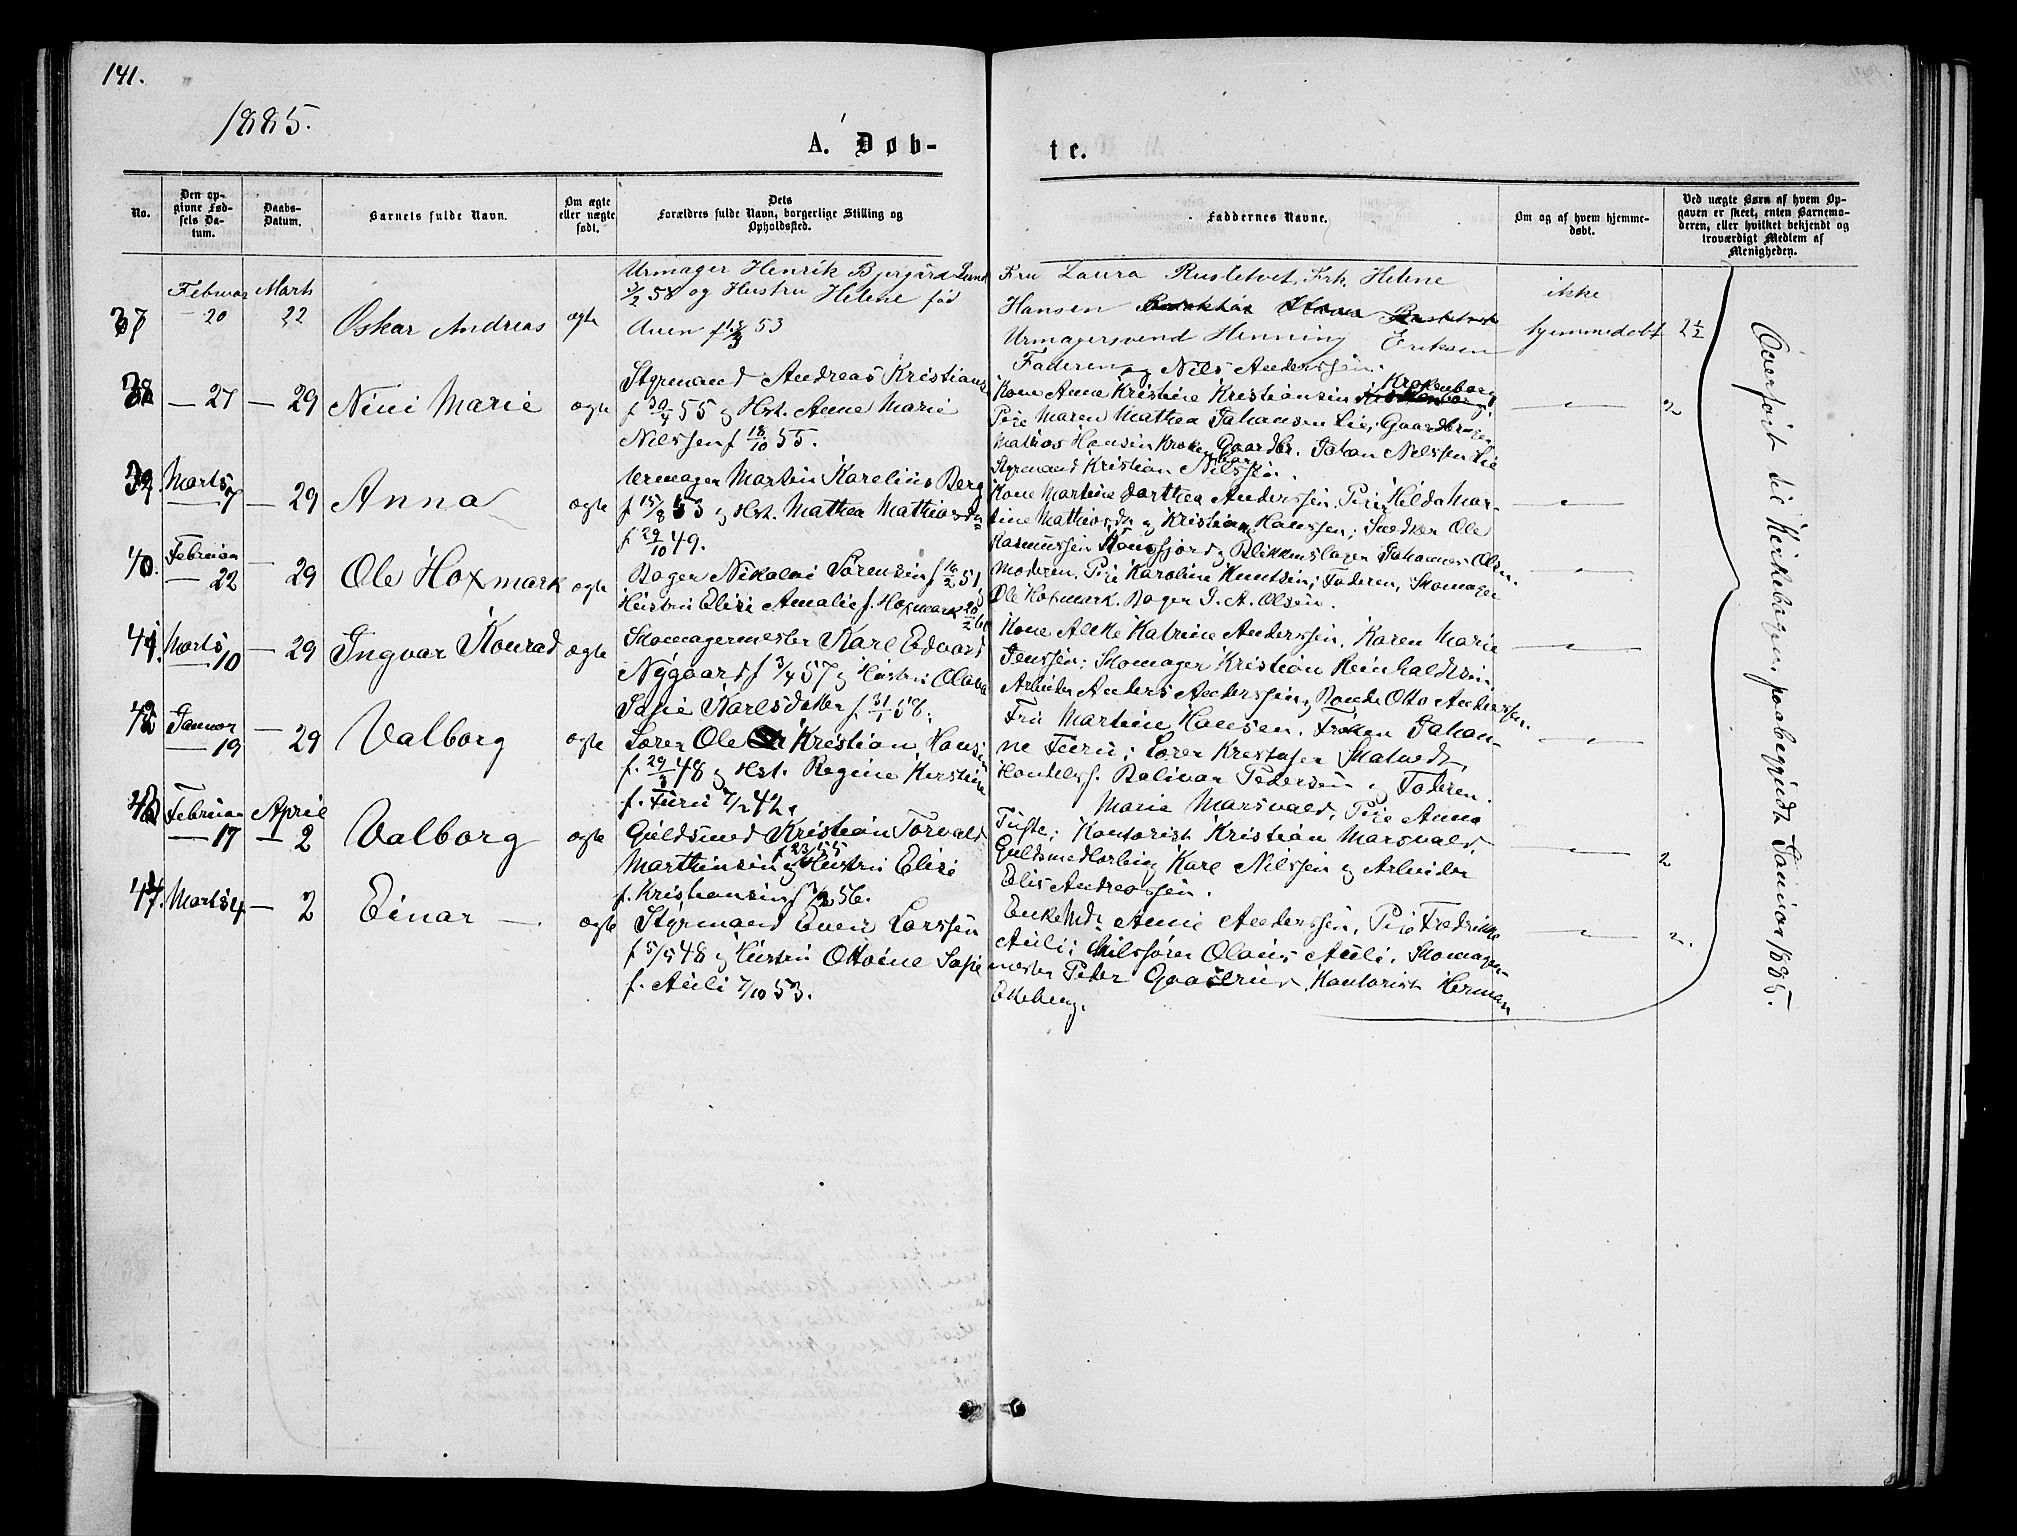 141.
1885.
A. Døb-
te.
No.
Den op-
givne Fød-
sels Da-
tum.
Daabs-
Datum.
Barnets fulde Navn.
Om ægte
eller uægte
født.
Dets
Forældres fulde Navn, borgerlige Stilling og
Opholdssted.
Faddernes Navne.
Om og af hvem hjemme-
døbt.
Ved uægte Børn af hvem Op-
gaven er skeet, enten Barnemo-
deren, eller hvilket bekjendt og
troværdigt Medlem af
Menigheden.
37
Februar
20
Marts
22
Oskar Andreas
ægte
Urmager Henrik Bjergård Lund
3/2 58 og Hustru Helene fød
53
Fru Laura Rustetvet, Frk. Helene
Hansen
Urmagersvend Henning Eriksen
Faderen og Nils Anderssen.
ikke
hjemmedøbt
2 1/2
38
— 27
— 29
Nini Marie
ægte
Styrmand Andreas Kristians
f 30/4 55 og Hst. Anne Marie
Nilssen f 18/10 55.
Kone Anne Kristine Kristiansen Krokenborg
Pige Maren Mathea Johansen Lie, Gaardbruger
Mathias Hansen Kroken Gaardbr. Johan Nilssen Lie
Styrmand Kristian Nilssen
— " —
2
39
Marts
— 7
— 29
Anna
ægte
Urmager Martin Karelius Berg
f 15/8 53 og Hst. Mathea Mathiasdr
f 29/10 49.
Kone Martine Dorthea Anderssen, Pige Hilda Mar-
tine Mathiasdr og Kristian Hanssen; Snedker Ole
Rasmussen Kongsfjord og Blikkenslager Johannes Olsen.
— " —
40.
Februar
— 22
— 29
Ole Hoxmark
ægte
Bager Nikolai Sørensen f 16/2 51
Hustru Elise Amalie f. Hoxmark
Moderen, Pige Karoline Knutsen; Faderen, Skomager
Ole Hoxmark. Bager J. A. Olsen.
— " —
41.
Marts
— 10
— 29
Ingvar Konrad
ægte
Skomagermester Karl Edvard
Nygaard f 3/4 57 og Hustru Olava
Sofie Karlsdatter f 31/1 58.
Kone Alette Katrine Anderssen, Karen Marie
Jenssen; Skomager Kristian Reinholdsen
Arbeider Anders Anderssen og Otto Anderssen.
— " —
42
Januar
— 19
— 29
Valborg
ægte
Lærer Ole Kristian Hansen
f. 29/3 48 og Hst. Regine Kerstine
f. Furu 7/2 42.
Fru Martine Hansen. Frøken Johan-
ne Furu; Lærer Kristofer
Handelsf. Bolivar Pedersen og Faderen.
— " —
43
Februar
— 17
April
— 2
Valborg
ægte
Guldsmed Kristian Torvald
Marthinsen og Hustru Elise
f. Kristiansen
Marie Marsvald, Pige Anna
Tufte; Kontorist Kristian Marsvald,
Guldsmedlærling Karl Nilssen og Arbeider
Elis Andreassen.
— " —
2
44.
Marts 4
— 2
Einar —
ægte
Styrmand Even Larssen
f 5/5 48 og Hustru Ottoine Sofie
f. Auli 7/10 53.
Enkemd. Anne Anderssen, Pige Fredrikke
Auli; Olaus Auli, Skomager-
mester Peter Gaaserud, Kontorist Herman
Ekeberg.
— " —
2.
Overført til Kirkebogen, paabegyndt Januar 1885.